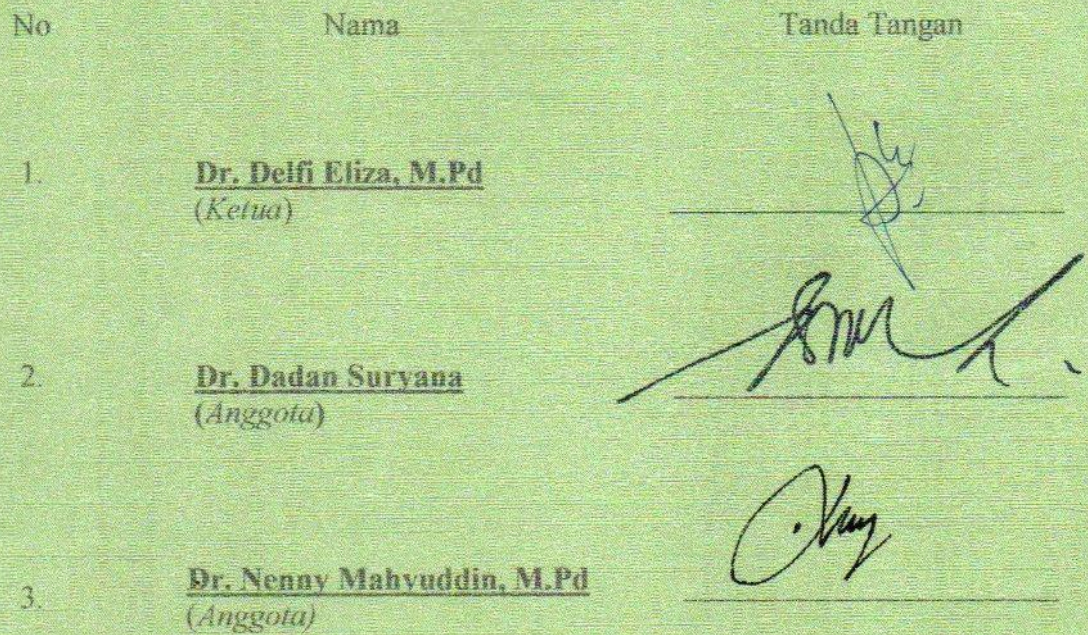 No Nama Tanda Tangan
1. Dr. Delfi Eliza, M.Pd
(Ketua)
2. Dr. Dadan Suryana
(Anggota)
3. Dr. Nenny Mahyuddin, M.Pd
(Anggota)